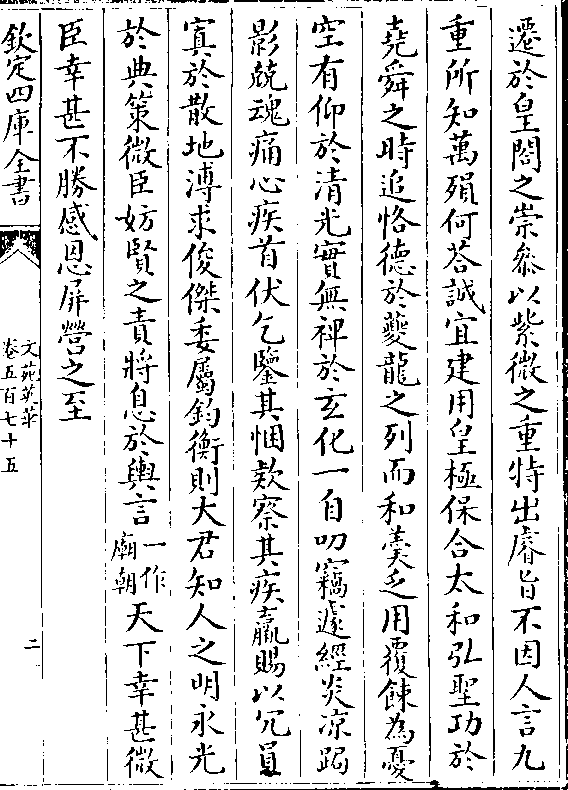 遷於皇閤之崇叅以紫微之重特出睿旨不因人言九
重所知萬殞何荅誠宜建用皇極保合太和弘聖功於
堯舜之時追恪德於夔龍之列而和羮乏用覆餗為憂
空有仰於清光實無裨於玄化一自叨竊遽經炎凉跼
影兢魂痛心疾首伏乞鑒其悃欵察其疾羸賜以冗員
寘於散地溥求俊傑委屬鈞衡則大君知人之明永光
於典策微臣妨賢之責將息於輿言一作廟朝天下幸甚微
臣幸甚不勝感恩屏營之至
欽定四庫全書
文苑英華
卷五百七十五
二